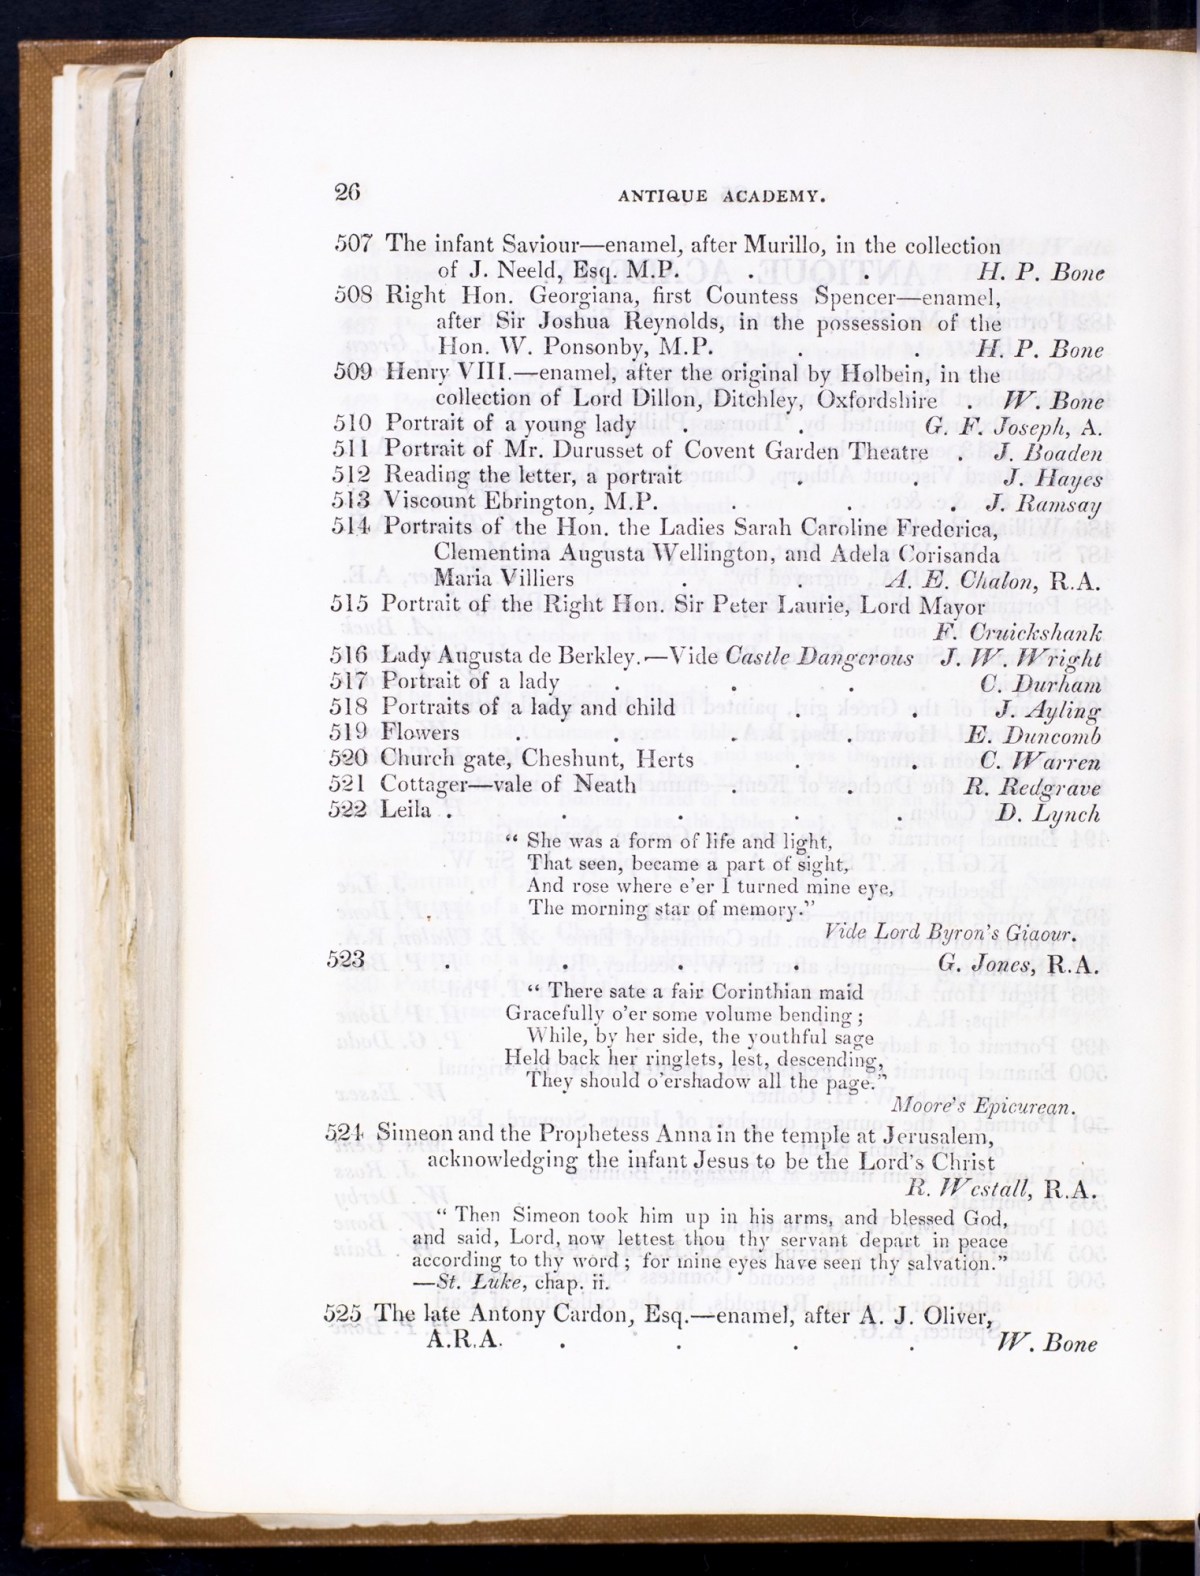 26 ANTIQUE ACADEMY.
507 The infant Saviour—enamel, after Murillo, in the collection
of J. Neeld, Esq. M.P. . . H. P. Bone
508 Right Hon. Georgiana, first Countess Spencer—enamel,
after Sir Joshua Reynolds, in the possession of the
Hon. W. Ponsonby, M.P. . . H. P. Bone
509 Henry VIII.—enamel, after the original by Holbein, in the
collection of Lord Dillon, Ditchley, Oxfordshire . W. Bone
510 Portrait of a young lady . . G. F. Joseph, A.
511 Portrait of Mr. Durusset of Covent Garden Theatre . J. Boaden
512 Reading the letter, a portrait . . J. Hayes
513 Viscount Ebrington, M.P. . . . J. Ramsay
514 Portraits of the Hon. the Ladies Sarah Caroline Frederica,
Clementina Augusta Wellington, and Adela Corisanda
Maria Villiers . . A. E. Chalon, R.A.
515 Portrait of the Right Hon. Sir Peter Laurie, Lord Mayor
F. Cruickshank
516 Lady Augusta de Berkley.—Vide Castle Dangerous J. W. Wright
517 Portrait of a lady . . . C. Durham
518 Portraits of a lady and child . . J. Ayling
519 Flowers . . . . E. Duncomb
520 Church gate, Cheshunt, Herts . . C. Warren
521 Cottager—vale of Neath . . R. Redgrave
522 Leila . . . . . D. Lynch
“ She was a form of life and light,
That seen, became a part of sight,
And rose where e'er I turned mine eye,
The morning star of memory.”
Vide Lord Byron's Giaour.
523 . . . . G. Jones, R.A.
“ There sate a fair Corinthian maid
Gracefully o'er some volume bending ;
While, by her side, the youthful sage
Held back her ringlets, lest, descending,
They should o'ershadow all the page.”
Moore's Epicurean.
524 Simeon and the Prophetess Anna in the temple at Jerusalem,
acknowledging the infant Jesus to be the Lord's Christ
R. Westall, R.A.
“ Then Simeon took him up in his arms, and blessed God,
and said, Lord, now lettest thou thy servant depart in peace
according to thy word ; for mine eyes have seen thy salvation.”
—St. Luke, chap. ii.
525 The late Antony Cardon, Esq.—enamel, after A. J. Oliver,
A.R.A. . . . . W. Bone